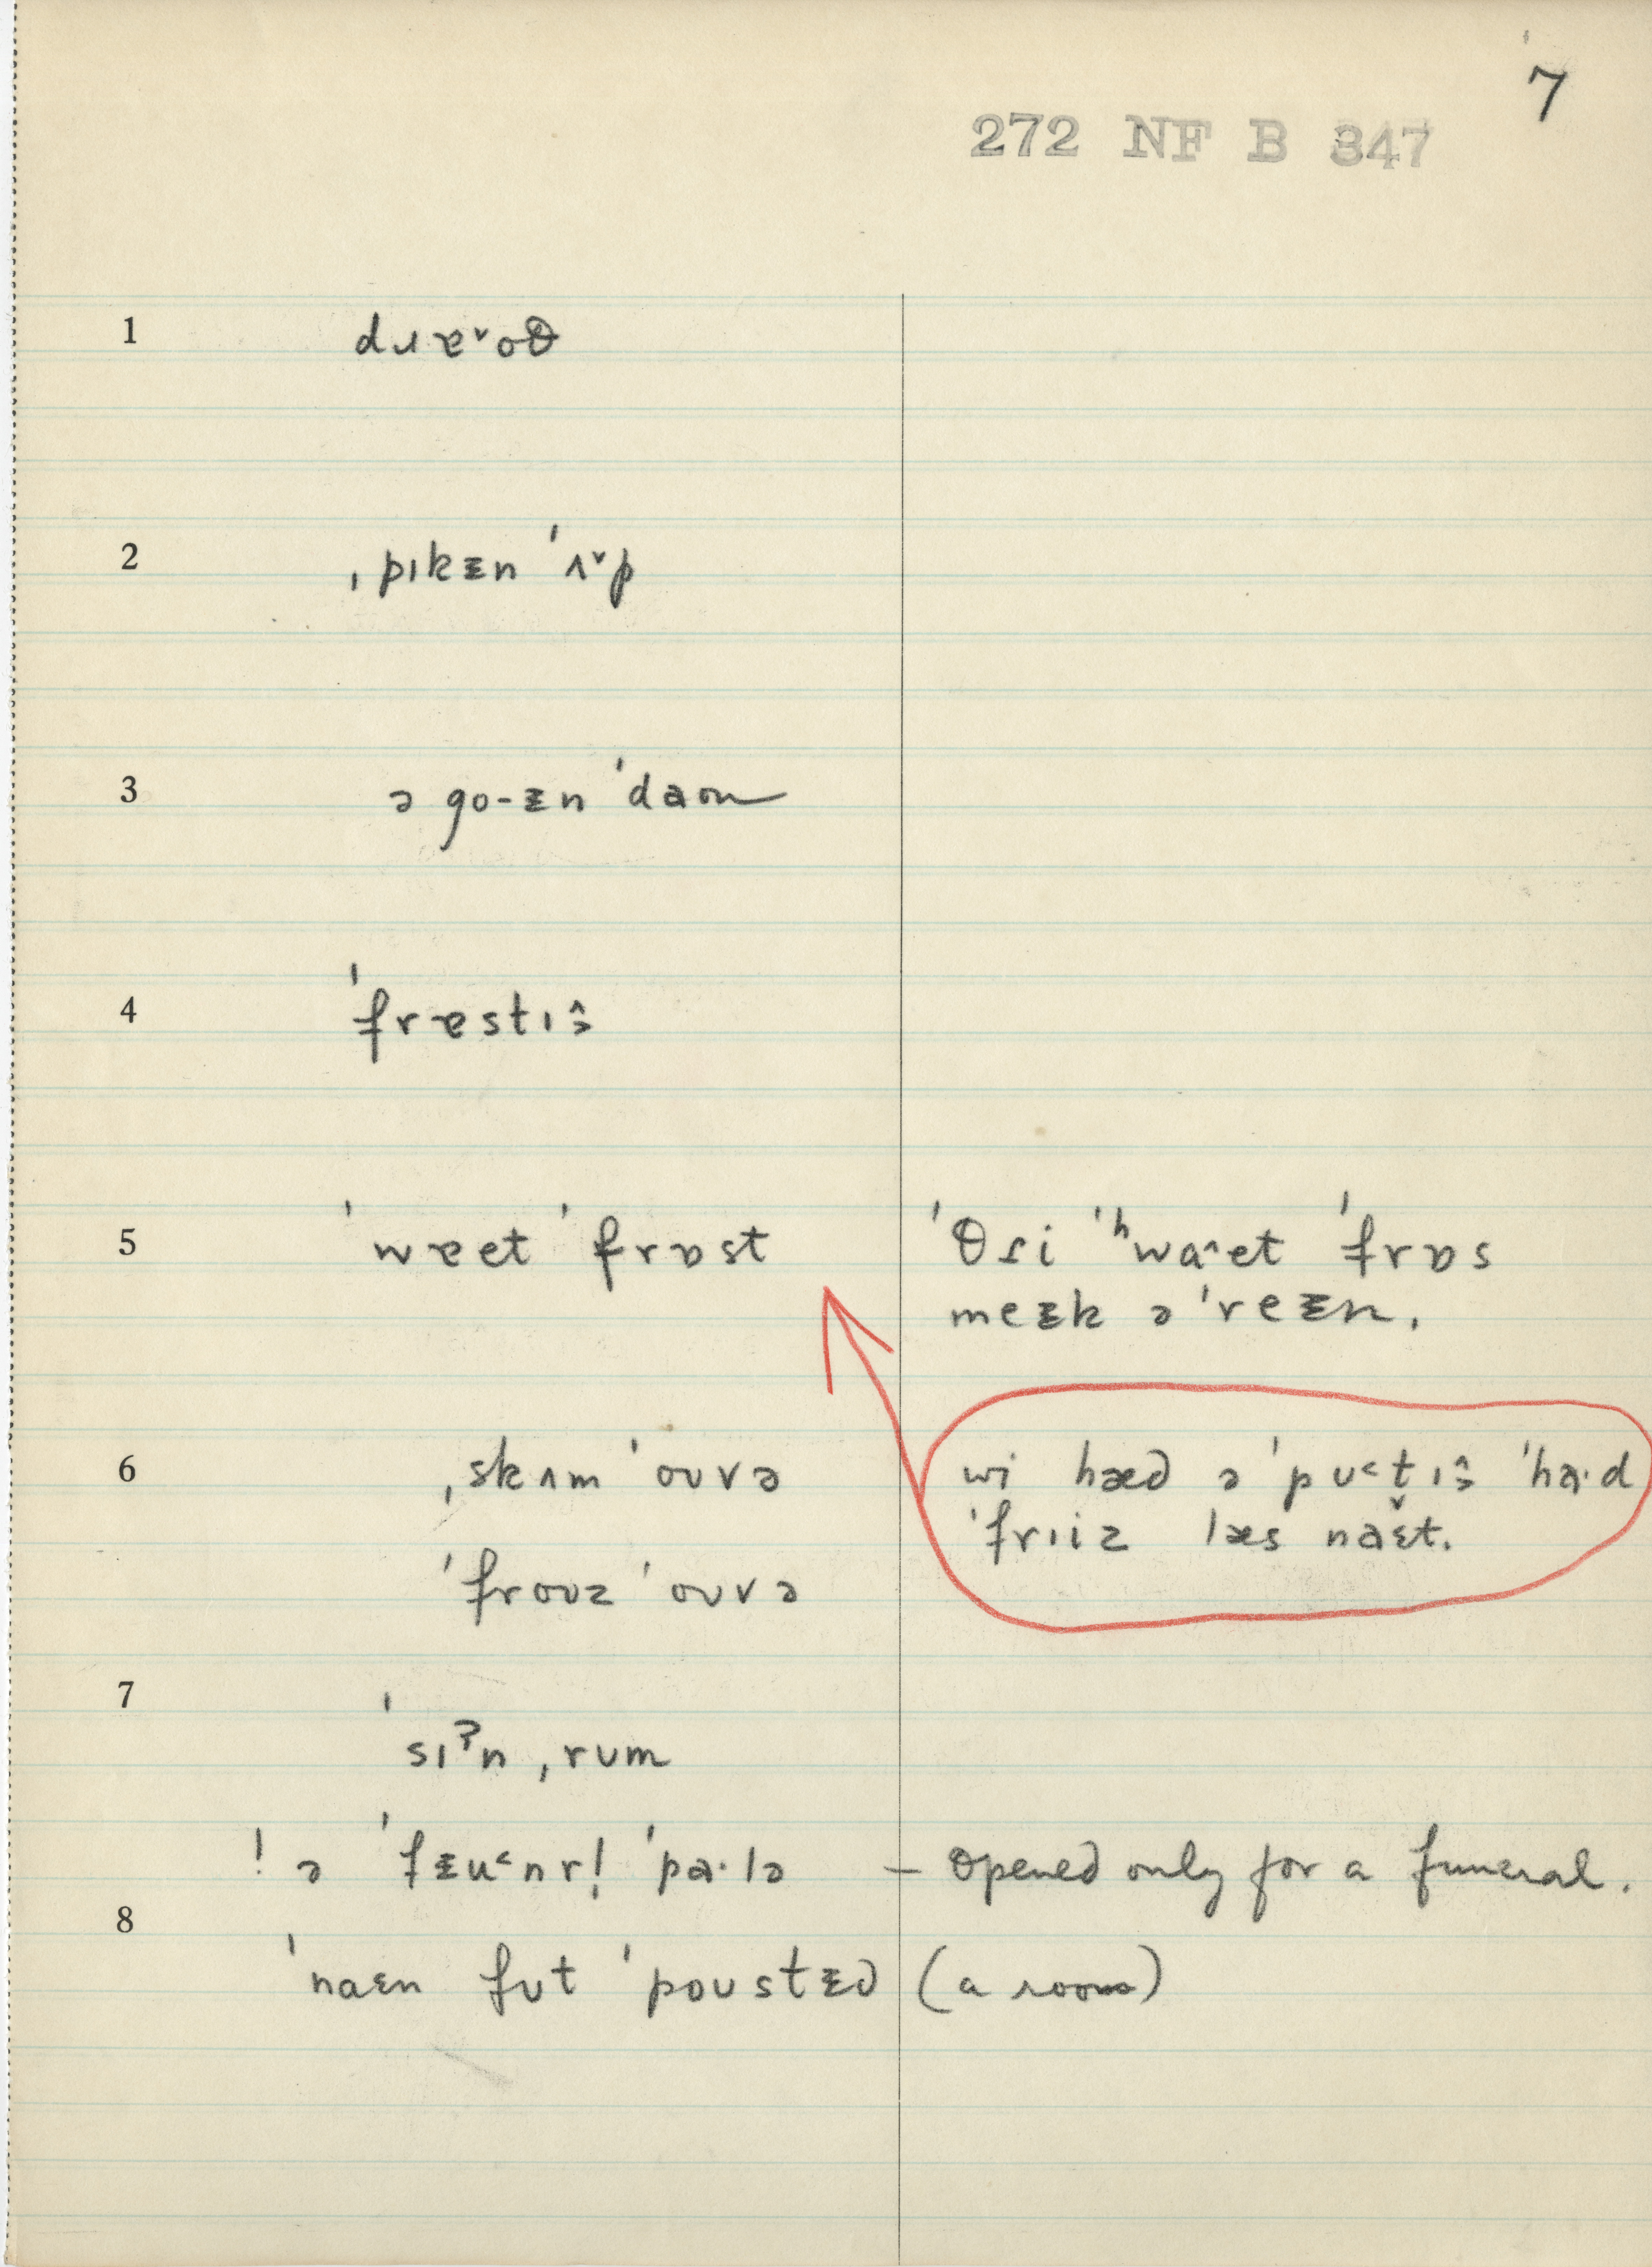 7
272 NF B 347
1 dɹɐˇoθ
2 ˌpɪkᵻn ˈʌˇp
3 ə go-ᵻn ˈdaʊn
4 ˈfrɐstɪɜ̂
5 ˈwɐet ˈfrɒst ˈθɾi ˈʰwaˆet ˈfrɒs
meᵻk ə ˈreᵻn.
6 ˌskʌm ˈoʊvə wi hæd ə ˈpʊ˂t̬ɪɜ̂ ˈha·d
ˈfrɪiz læs naɛ̌t.
ˈfroʊz ˈoʊvə
7 ˈsɪˀn ˌrʊm
! ə ˈfᵻu˂nr̩l ˈpa·lə – Opened only for a funeral.
8 ˈnaɛn fʊt ˈpoʊstᵻd (a room)